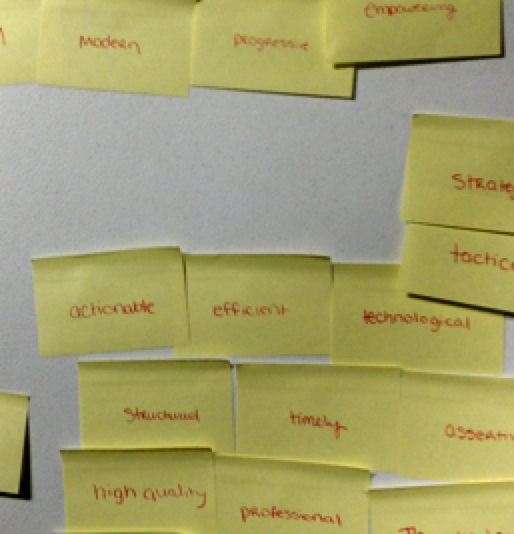 Modern
progressive
empowering
Strate
tactic
actionable
efficient
technological
structured
timely
asserti
high quality
professional